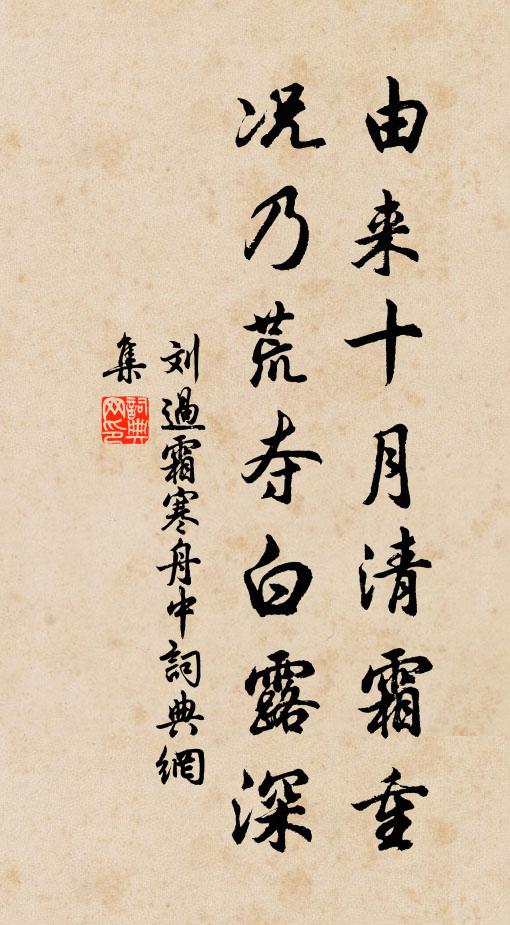 由来十月清霜重
况乃荒夺白露深
刘過霜寒舟中詞典網
集
詞典网印